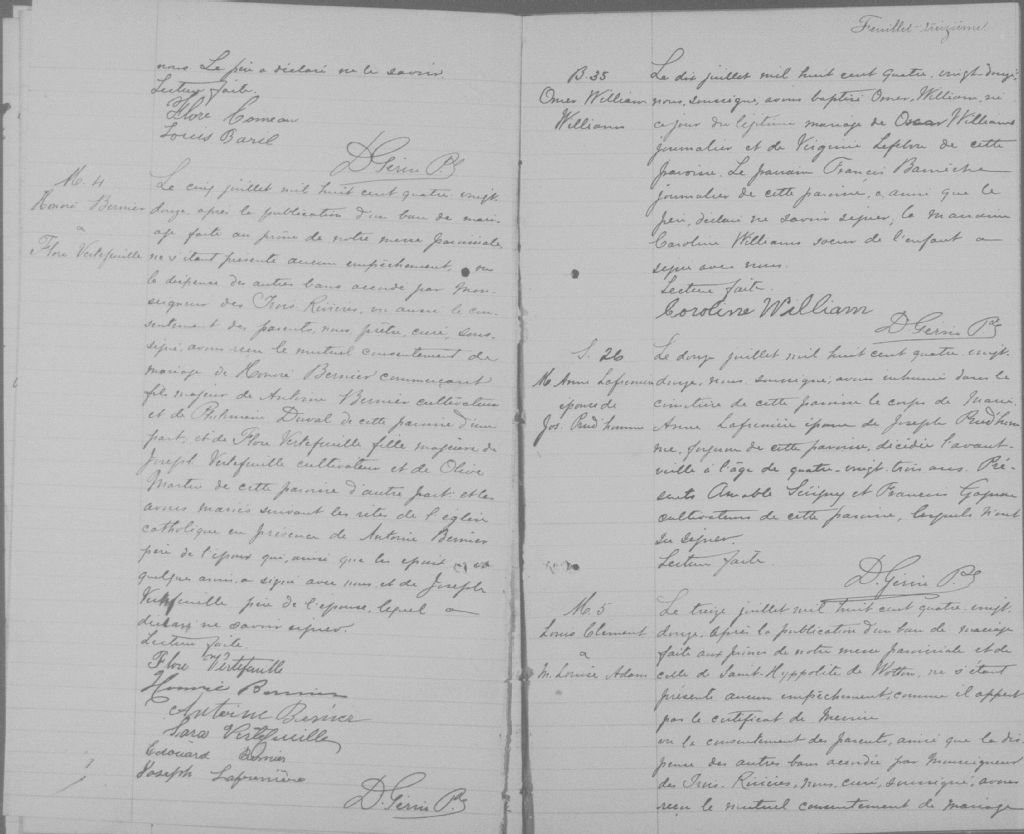 nous. Le père a déclaré ne le savoir.
Lecture faite.
Flore Comeau
Louis Baril
D. Gérin Ptr
M. 4
Honoré Bernier
a
Flore Vertefeuille
Le cinq juillet mil huit cent quatre-vingt-
douze, après la publication d'un ban de mari-
age faite au prône de notre messe paroissiale
ne s'étant présenté aucun empêchement, vu
la dispense des autres bans accordé par Mon-
seigneur des Trois-Rivières, vu aussi le con-
sentement des parents, nous prêtre, curé, sous-
signé, avons reçu le mutuel consentement de
mariage de Honoré Bernier commerçant
fils majeur de Antoine Bernier cultivateur
et de Philomène Duval de cette paroisse d'une
part; et de Flore Vertefeuille fille majeure de
Joseph Vertefeuille cultivateur et de Olive
Martin de cette paroisse d'autre part; et les
avons mariés suivant les rites de l'église
catholique en présence de Antoine Bernier
père de l'époux qui, ainsi que les époux et
quelques amis, a signé avec nous, et de Joseph
Vertefeuille père de l'épouse, lequel a
déclaré ne savoir signer.
Lecture faite
Flore Vertefeuille
Honoré Bernier
Antoine Bernier
Sara Vertefeuille
Edouard Bernier
Joseph Lafrenière
D. Gérin Ptr
Feuillet treizième
B. 35
Omer William
Williams
Le dix juillet mil huit cent quatre-vingt-douze,
nous, soussigné, avons baptisé Omer, William, né
ce jour du légitime mariage de Oscar Williams
journalier et de Virginie Lefebvre de cette
paroisse. Le parrain François
journalier de cette paroisse, a, ainsi que le
père, déclaré ne savoir signer, la marraine
Caroline Williams soeur de l'enfant a
signé avec nous.
Lecture faite.
Caroline William
D. Gérin Ptr
S. 26
M. Anne Lafrenière
épouse de
Jos. Prud'homme
Le douze juillet mil huit cent quatre-vingt-
douze, nous, soussigné, avons inhumé dans le
cimetière de cette paroisse le corps de Marie
Anne Lafrenière épouse de Joseph Prud'hom
me, forgeron de cette paroisse, décédée l'avant-
veille à l'âge de quatre-vingt trois ans. Pré-
sents Amable Sévigny et François Gagnon
cultivateurs de cette paroisse, lesquels n'ont
su signer.
Lecture faite
D. Gérin Ptr
M. 5
Louis Clement
a
M. Louise Adam
Le treize juillet mil huit cent quatre-vingt-
douze, après la publication d'un ban de mariage
faite aux prônes de notre messe paroissiale et de
celle de Saint-Hyppolite de Wotton, ne s'étant
présenté aucun empêchement, comme il appert
par le certificat de Messire
vu le consentement des parents, ainsi que la dis-
pense des autres bans accordée par Monseigneur
des Trois-Rivières, nous, curé, soussigné, avons
reçu le mutuel consentement de mariage